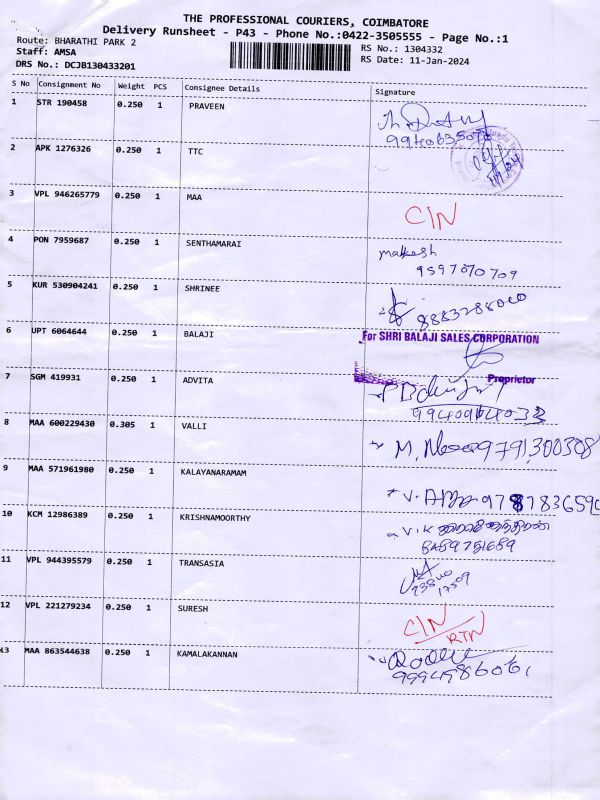 THE PROFESSIONAL COURIERS, COIMBATORE
Delivery Runsheet - P43 - Phone No.:0422-3505555 - Page No.:1
Route: BHARATHI PARK 2
Staff: AMSA
DRS No.: DCJB130433201
RS No.: 1304332
RS Date: 11-Jan-2024
S No Consignment No Weight PCS Consignee Details Signature
1 STR 190458 0.250 1 PRAVEEN
2 APK 1276326 0.250 1 TTC
3 VPL 946265779 0.250 1 MAA CIN
4 PON 7959687 0.250 1 SENTHAMARAI
mahesh
9597070709
5 KUR 530904241 0.250 1 SHRINEE
8883288000
6 UPT 6064644 0.250 1 BALAJI
For SHRI BALAJI SALES CORPORATION
Proprietor
7 SGM 419931 0.250 1 ADVITA
8 MAA 600229430 0.305 1 VALLI
9791300308
9 MAA 571961980 0.250 1 KALAYANARAMAM
10 KCM 12986389 0.250 1 KRISHNAMOORTHY
11 VPL 944395579 0.250 1 TRANSASIA
12 VPL 221279234 0.250 1 SURESH
CIN
RTN
13 MAA 863544638 0.250 1 KAMALAKANNAN